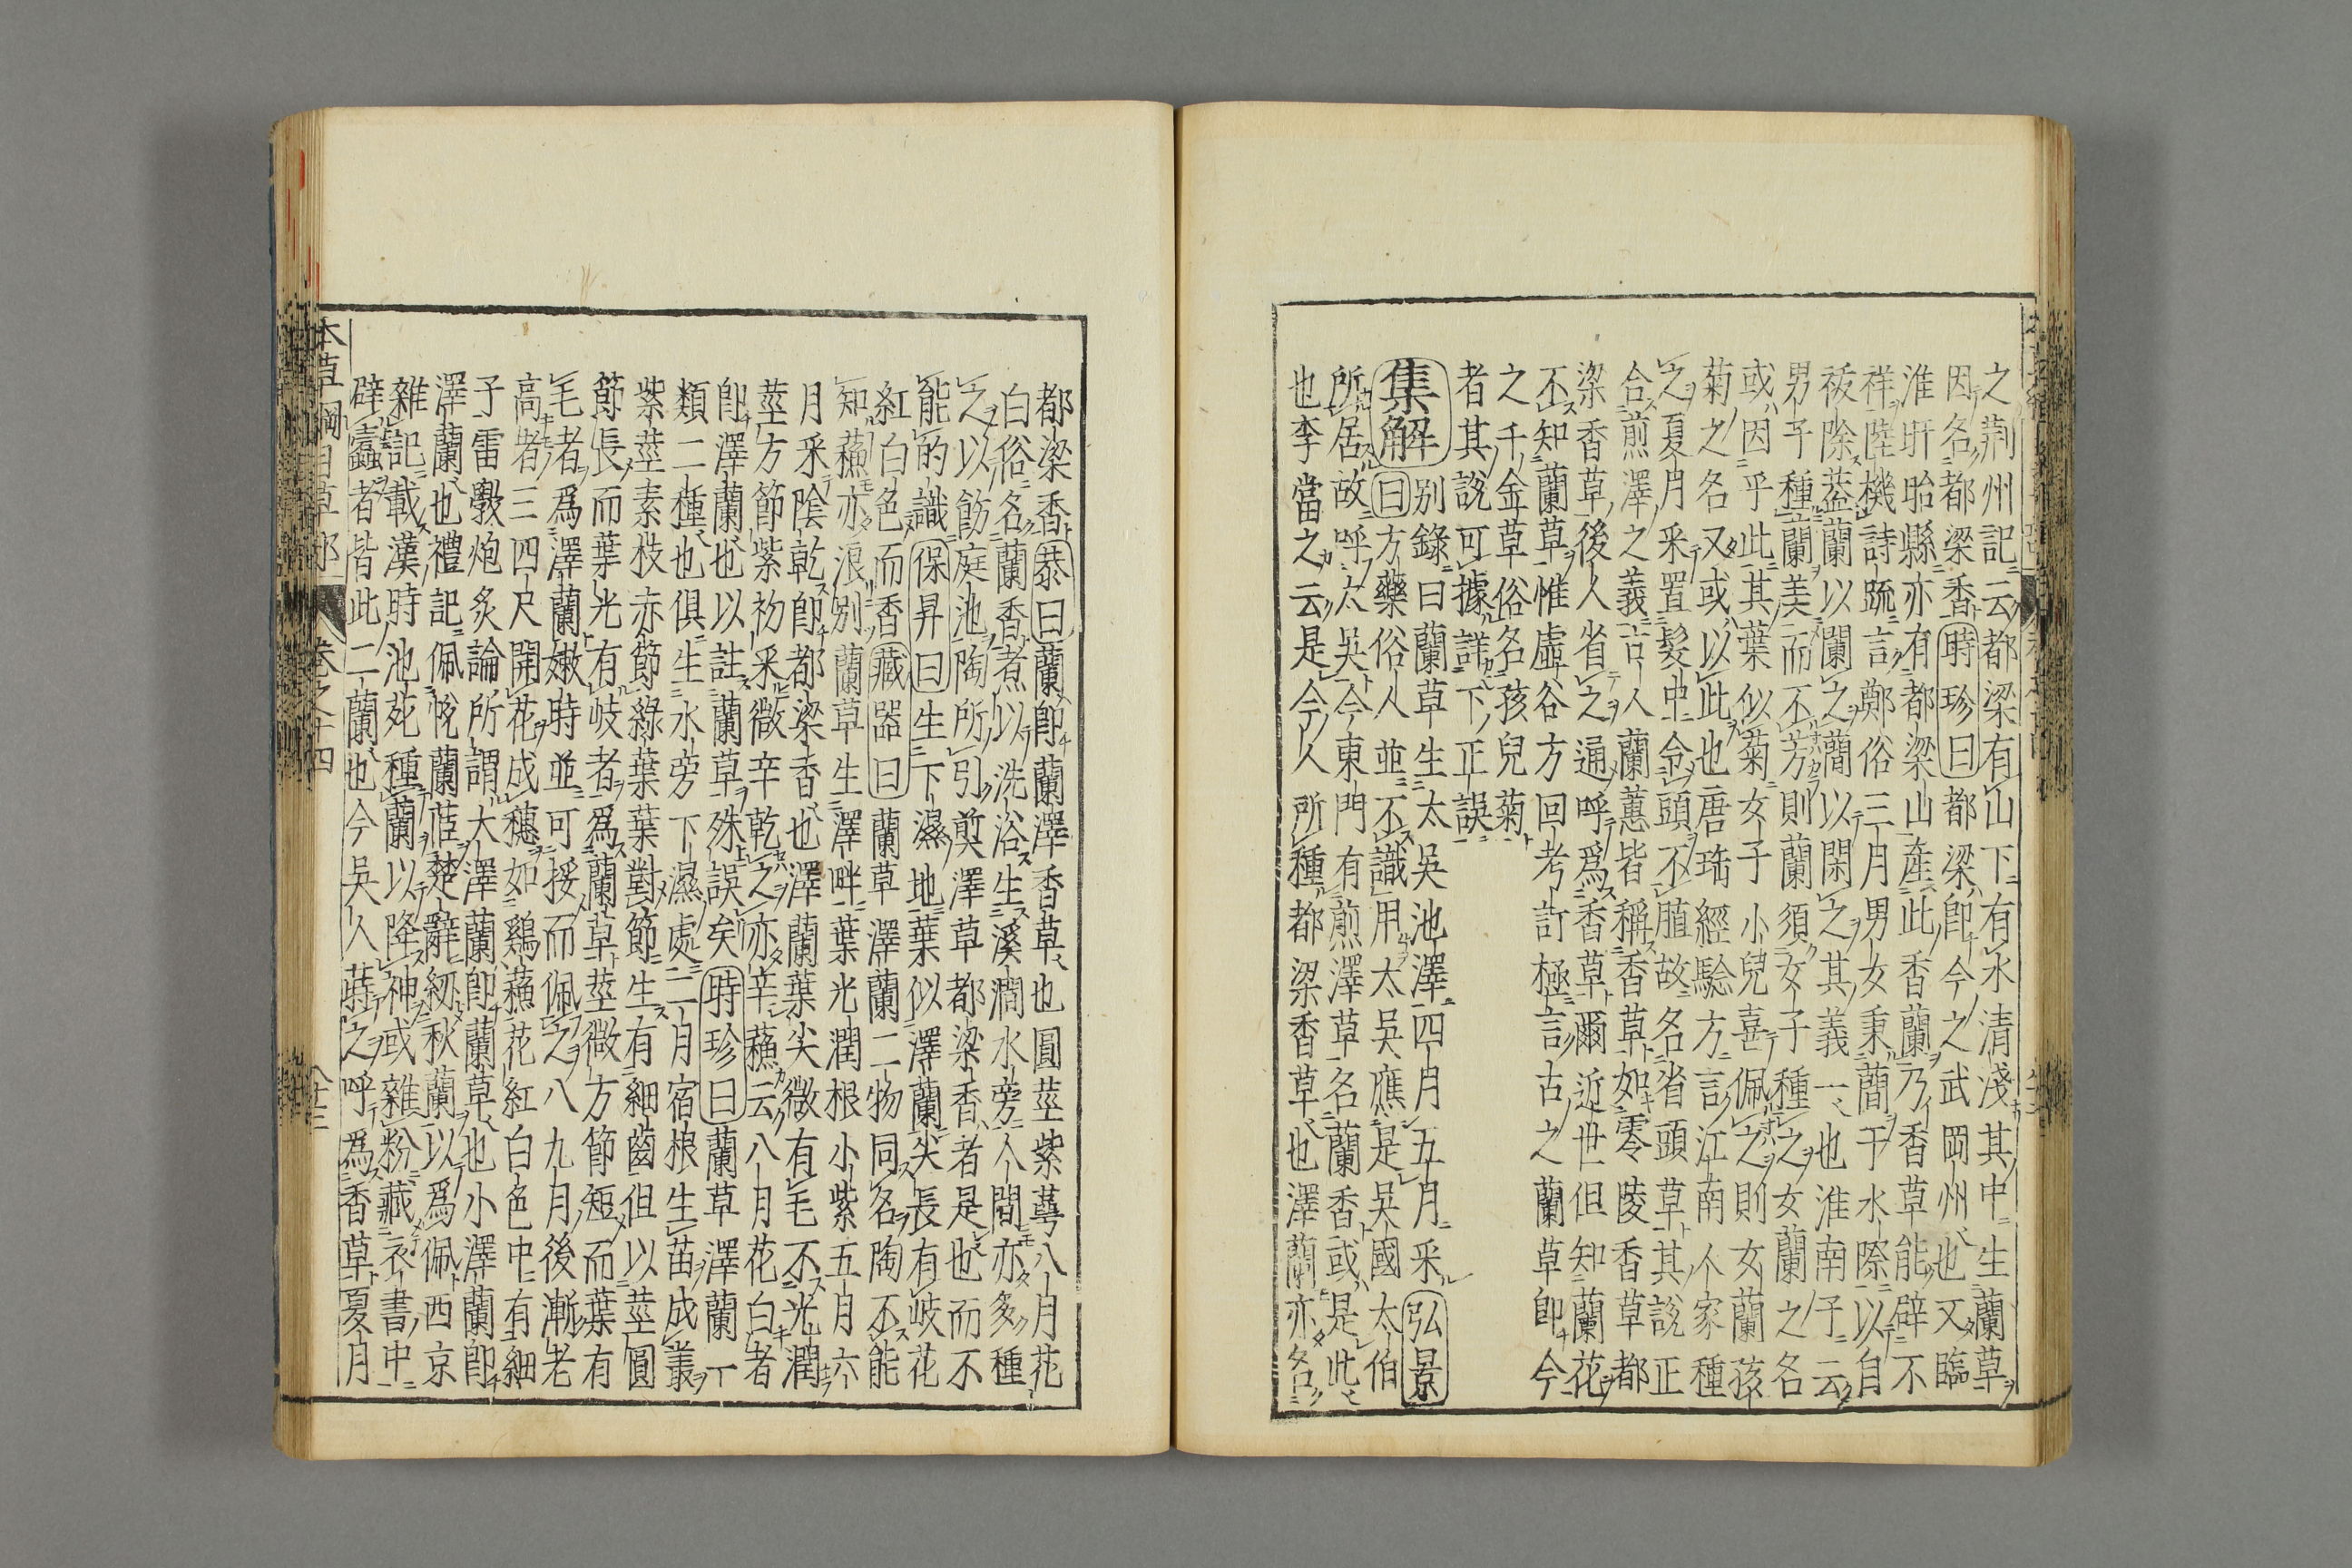 之荊州記云都梁有山下有水清淺其中生蘭草
因名都梁香時珍曰都梁卽今之武岡州也又臨
淮盱眙縣亦有都梁山產此香蘭乃香草能辟不
祥陸機詩疏言鄭俗三月男女秉蕑于水際以自
祓除葢蘭以闌之蕑以閑之其義一也淮南子云
男子種蘭美而不芳則蘭須女子種之女蘭之名
或因乎此其葉似菊女子小兒喜佩之則女蘭孩
菊之名又或以此也唐瑤經驗方言江南人家種
之夏月采置髮中令頭不䐈故名省頭草其說正
合煎澤之義古人蘭蕙皆稱香草如零陵香草都
梁香草後人省之通呼爲香草爾近世但知蘭花
不知蘭草惟虛谷方回考訂極言古之蘭草卽今
之千金草俗名孩兒菊
者其說可據詳下正誤
集解別錄曰蘭草生太吳池澤四月五月采弘景
曰方藥俗人並不識用太吳應是吳國太伯
所居故呼太吳今東門有煎澤草名蘭香或是此
也李當之云是今人所種都梁香草也澤蘭亦名
都梁香恭曰蘭卽蘭澤香草也圓莖紫萼八月花
白俗名蘭香煮以洗浴生溪澗水旁人間亦多種
之以飾庭池陶所引煎澤草都梁香者是也而不
能的識保昇曰生下濕地葉似澤蘭尖長有岐花
紅白色而香藏器曰蘭草澤蘭二物同名陶不能
知蘓亦浪別蘭草生澤畔葉光潤根小紫五月六
月采陰乾卽都梁香也澤蘭葉尖微有毛不光潤
莖方節紫初采微辛乾之亦辛蘓云八月花白者
卽澤蘭也以註蘭草殊誤矣時珍曰蘭草澤蘭一
類二種也俱生水旁下濕處二月宿根生苗成叢
紫莖素枝赤節綠葉葉對節生有細齒但以莖圓
節長而葉光有岐者爲蘭草莖微方節短而葉有
毛者爲澤蘭嫩時並可挼而佩之八九月後漸老
高者三四尺開花成穗如鷄蘓花紅白色中有細
子雷斆炮炙論所謂大澤蘭卽蘭草也小澤蘭卽
澤蘭也禮記佩帨蘭茝楚辭紉秋蘭以爲佩西京
雜記載漢時池苑種蘭以降神或雜粉藏衣書中
辟蠹者皆此二蘭也今吳人蒔之呼爲香草夏月
本草綱目草部 卷之十四